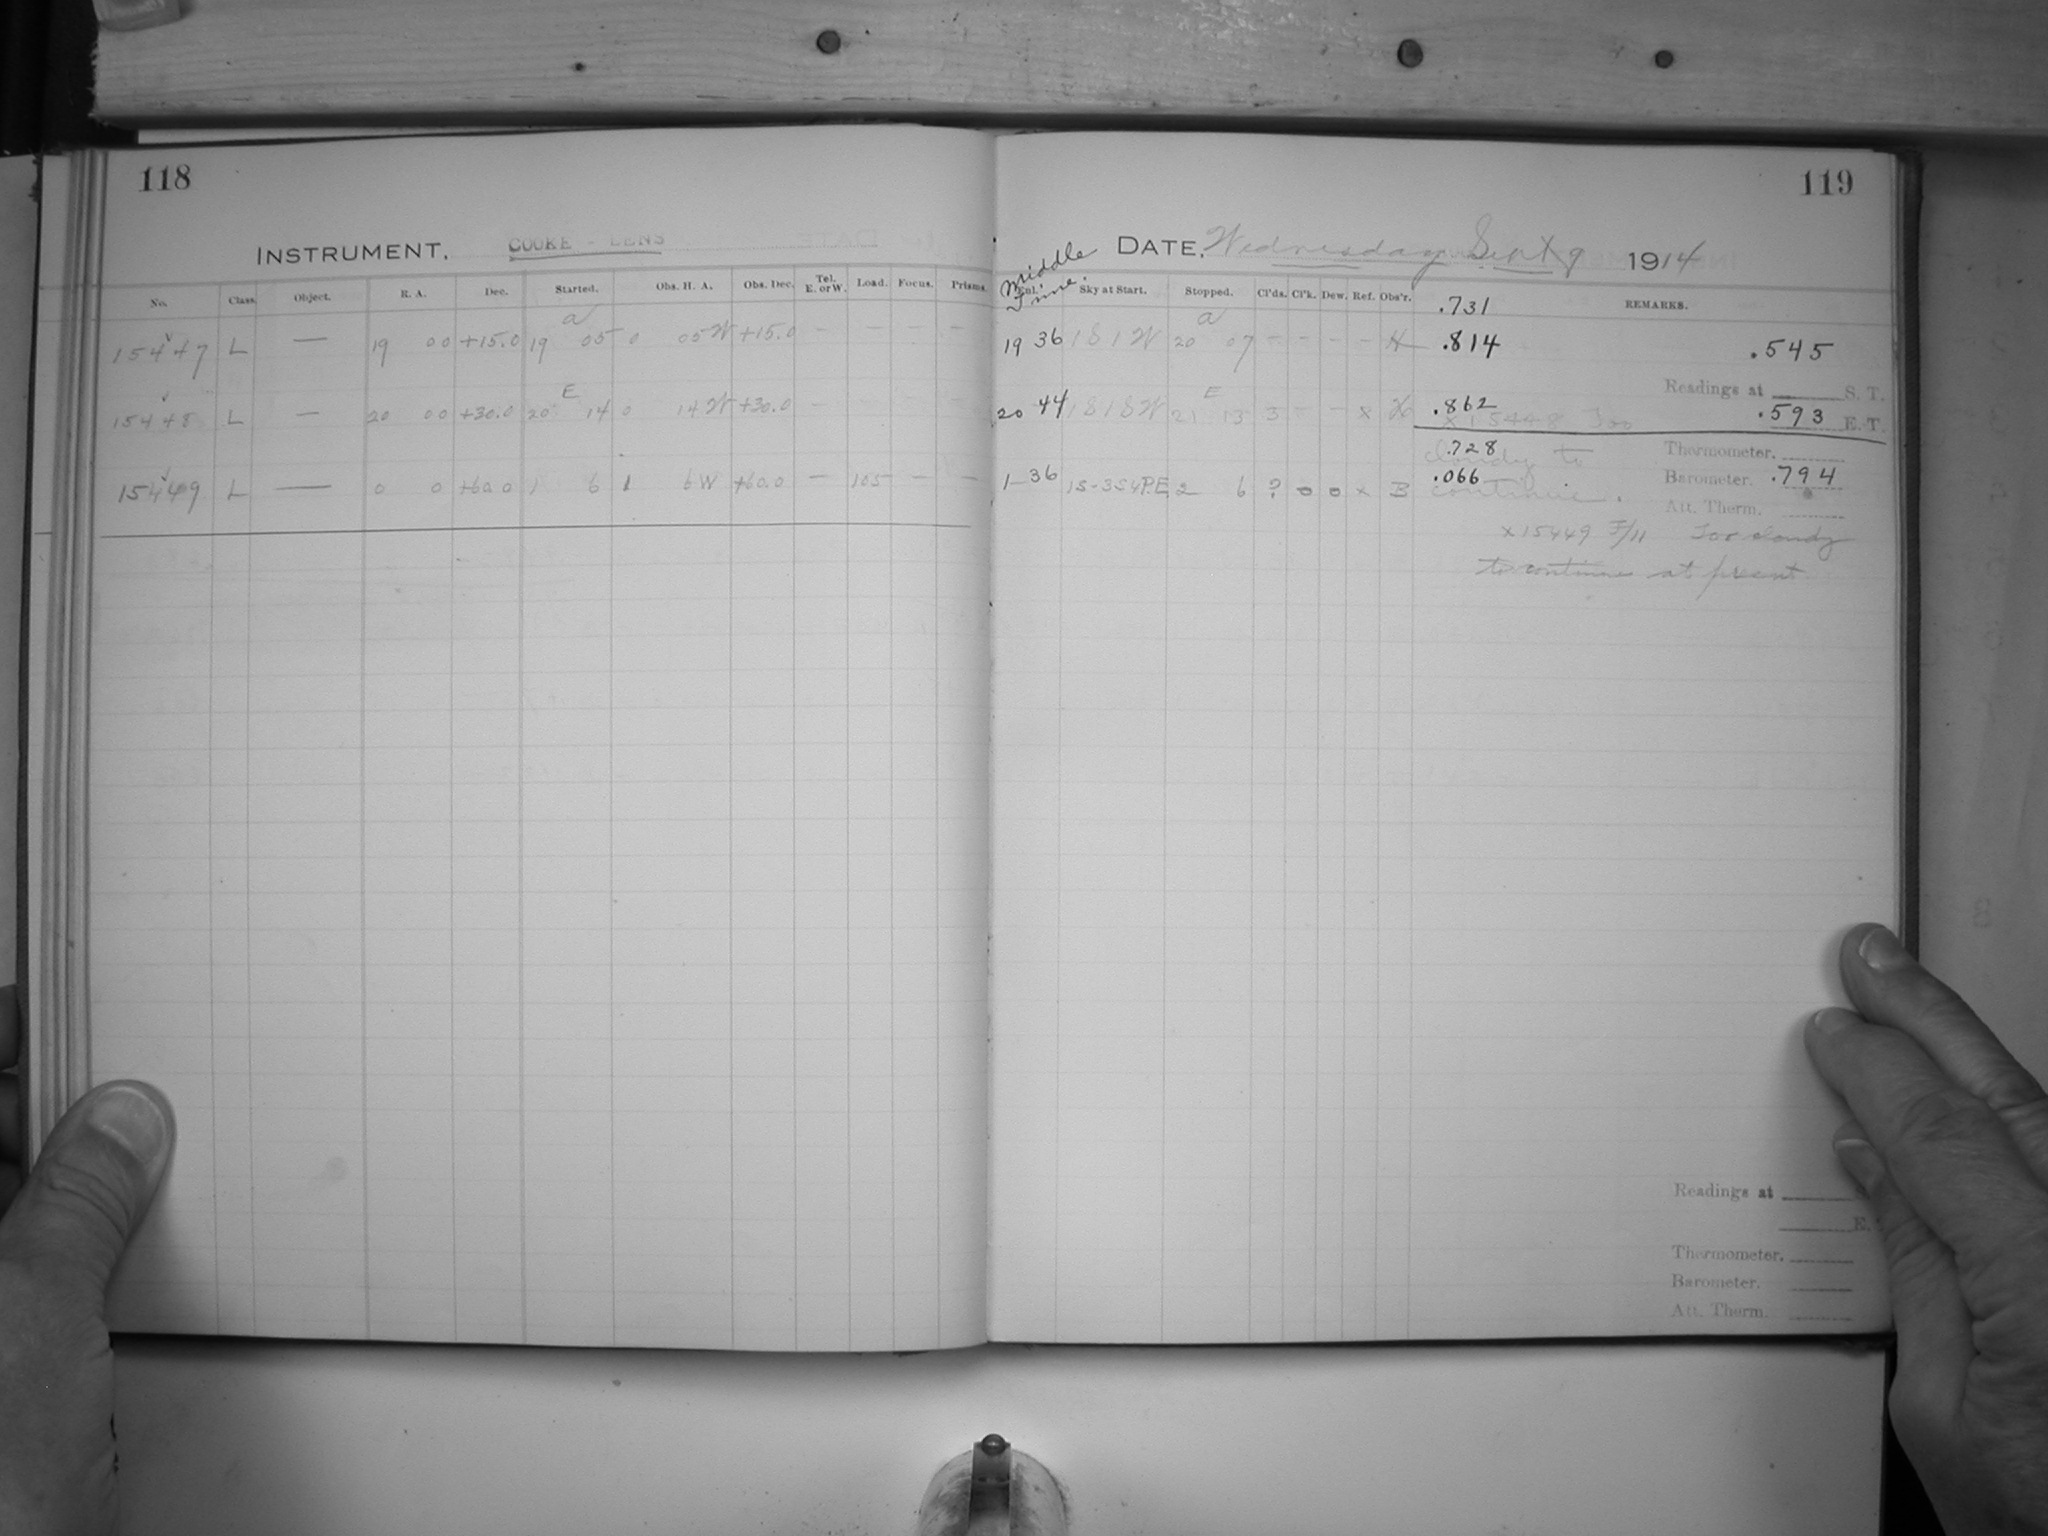 118
INSTRUMENT. COOKE - LENS
No. Class. Object. R. A. Dec. Started. Obs. H. A. Obs. Dec. Tel. E. or W. Load. Focus. Prisms.
a
15447 L — 19 00 +15.0 19 05 0 05 W +15.0 — — — —
E
15448 L — 20 00 +30.0 20 14 0 14 W +30.0 —
15449 L — 0 0 +60.0 1 6 1 6 W +60.0 — 105 — —
119
DATE, Wednesday Sept 9 1914
Middle Time
Enl. Sky at Start. Stopped. Cl'ds. Cl'k. Dew. Ref. Obs'r. REMARKS.
.731
a
19 36 1 8 1 W 20 07 — — — — H .814 .545
Readings at S. T.
E
20 44 1 8 1 8 W 21 13 3 — — x H .862 .593 E. T.
x 15448 Too
.728 Thermometer.
cloudy to
1 36 15-3S4P.E 2 6 ? 0 0 x B .066 Barometer. .794
continue.
Att. Therm.
x 15449 F/11 Too cloudy
to continue at present
Readings at
E.
Thermometer.
Barometer.
Att. Therm.